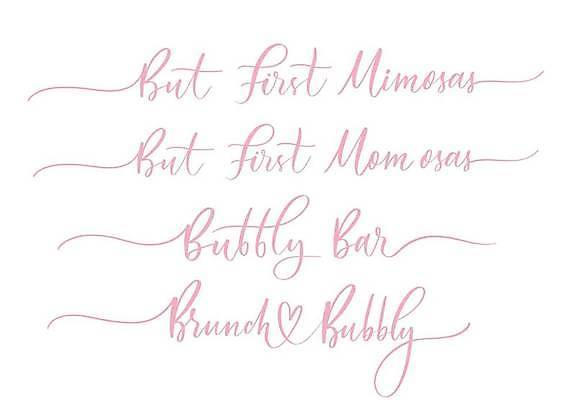 But First Mimosas
But First Momosas
Bubbly Bar
Brunch♡Bubbly